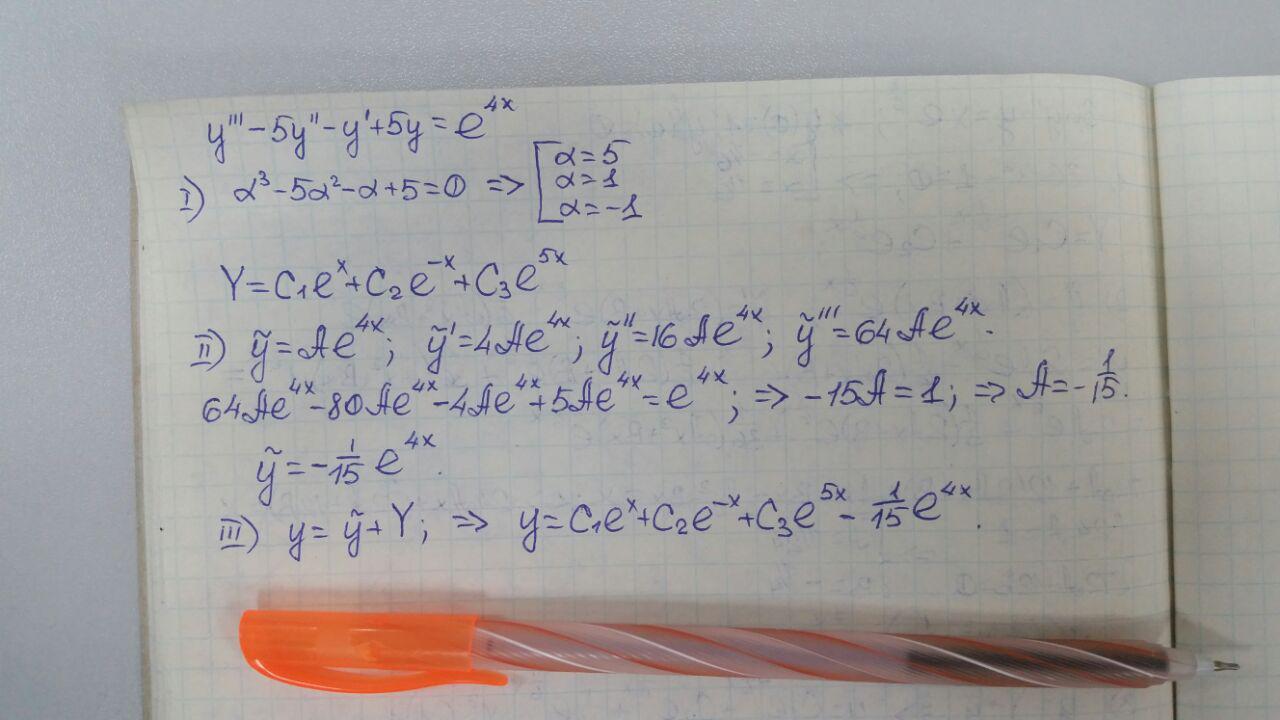 y''' - 5y'' - y' + 5y = e^{4x}
I) α³ - 5α² - α + 5 = 0 => [ α = 5
α = 1
α = -1
Y = C₁e^{x} + C₂e^{-x} + C₃e^{5x}
II) ỹ = Ae^{4x}; ỹ' = 4Ae^{4x}; ỹ'' = 16Ae^{4x}; ỹ''' = 64Ae^{4x}.
64Ae^{4x} - 80Ae^{4x} - 4Ae^{4x} + 5Ae^{4x} = e^{4x}; => -15A = 1; => A = -1/15.
ỹ = -1/15 e^{4x}.
III) y = ỹ + Y; => y = C₁e^{x} + C₂e^{-x} + C₃e^{5x} - 1/15 e^{4x}.